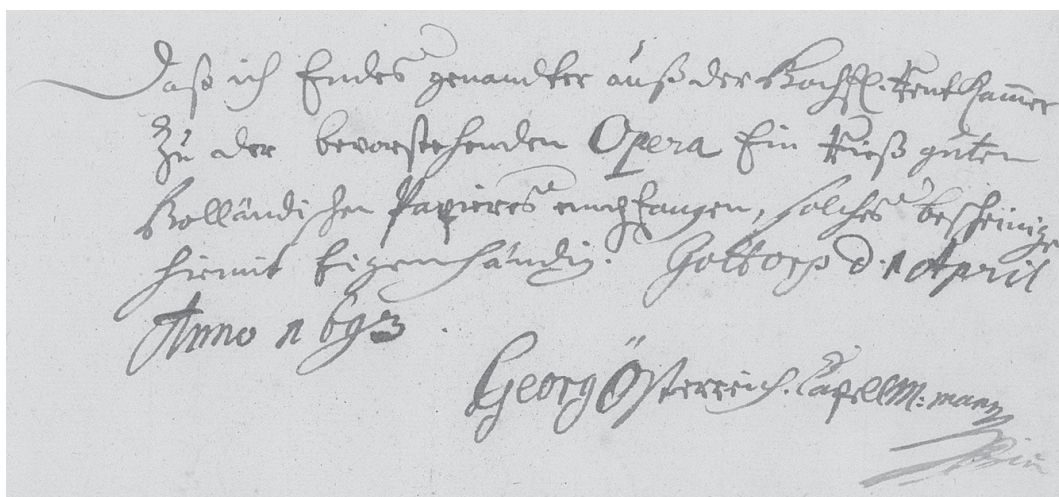 Daß ich Endes genandter auß der Hochfl. Rent Cammer
Zu der bevorstehenden Opera Ein Rieß guten
Holländischen Papieres empfangen, solches bescheinige
hiemit Eigenhändig. Gottorp d. 1 April
Anno 1693.
Georg Österreich. CapellM: mann